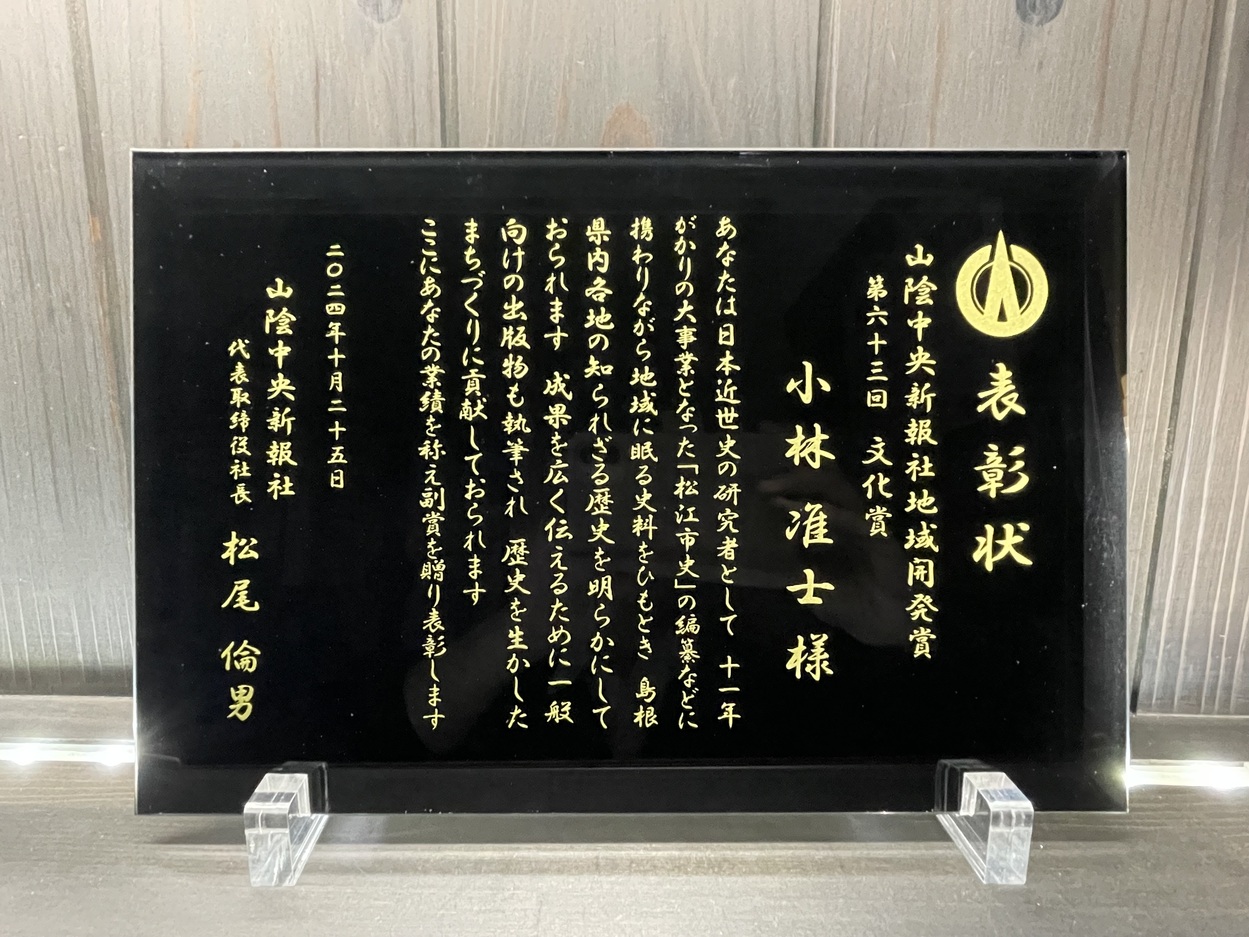 表彰状
山陰中央新報社地域開発賞
第六十三回 文化賞
小林准士様
あなたは日本近世史の研究者として 十一年
がかりの大事業となった「松江市史」の編纂などに
携わりながら地域に眠る史料をひもとき 島根
県内各地の知られざる歴史を明らかにして
おられます 成果を広く伝えるために一般
向けの出版物も執筆され 歴史を生かした
まちづくりに貢献しておられます
ここにあなたの業績を称え副賞を贈り表彰します
二〇二四年十月二十五日
山陰中央新報社
代表取締役社長 松尾倫男